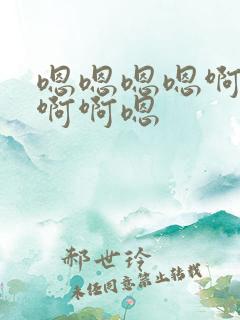 嗯嗯嗯嗯啊
啊啊嗯
郝世玲
未经同意禁止转载